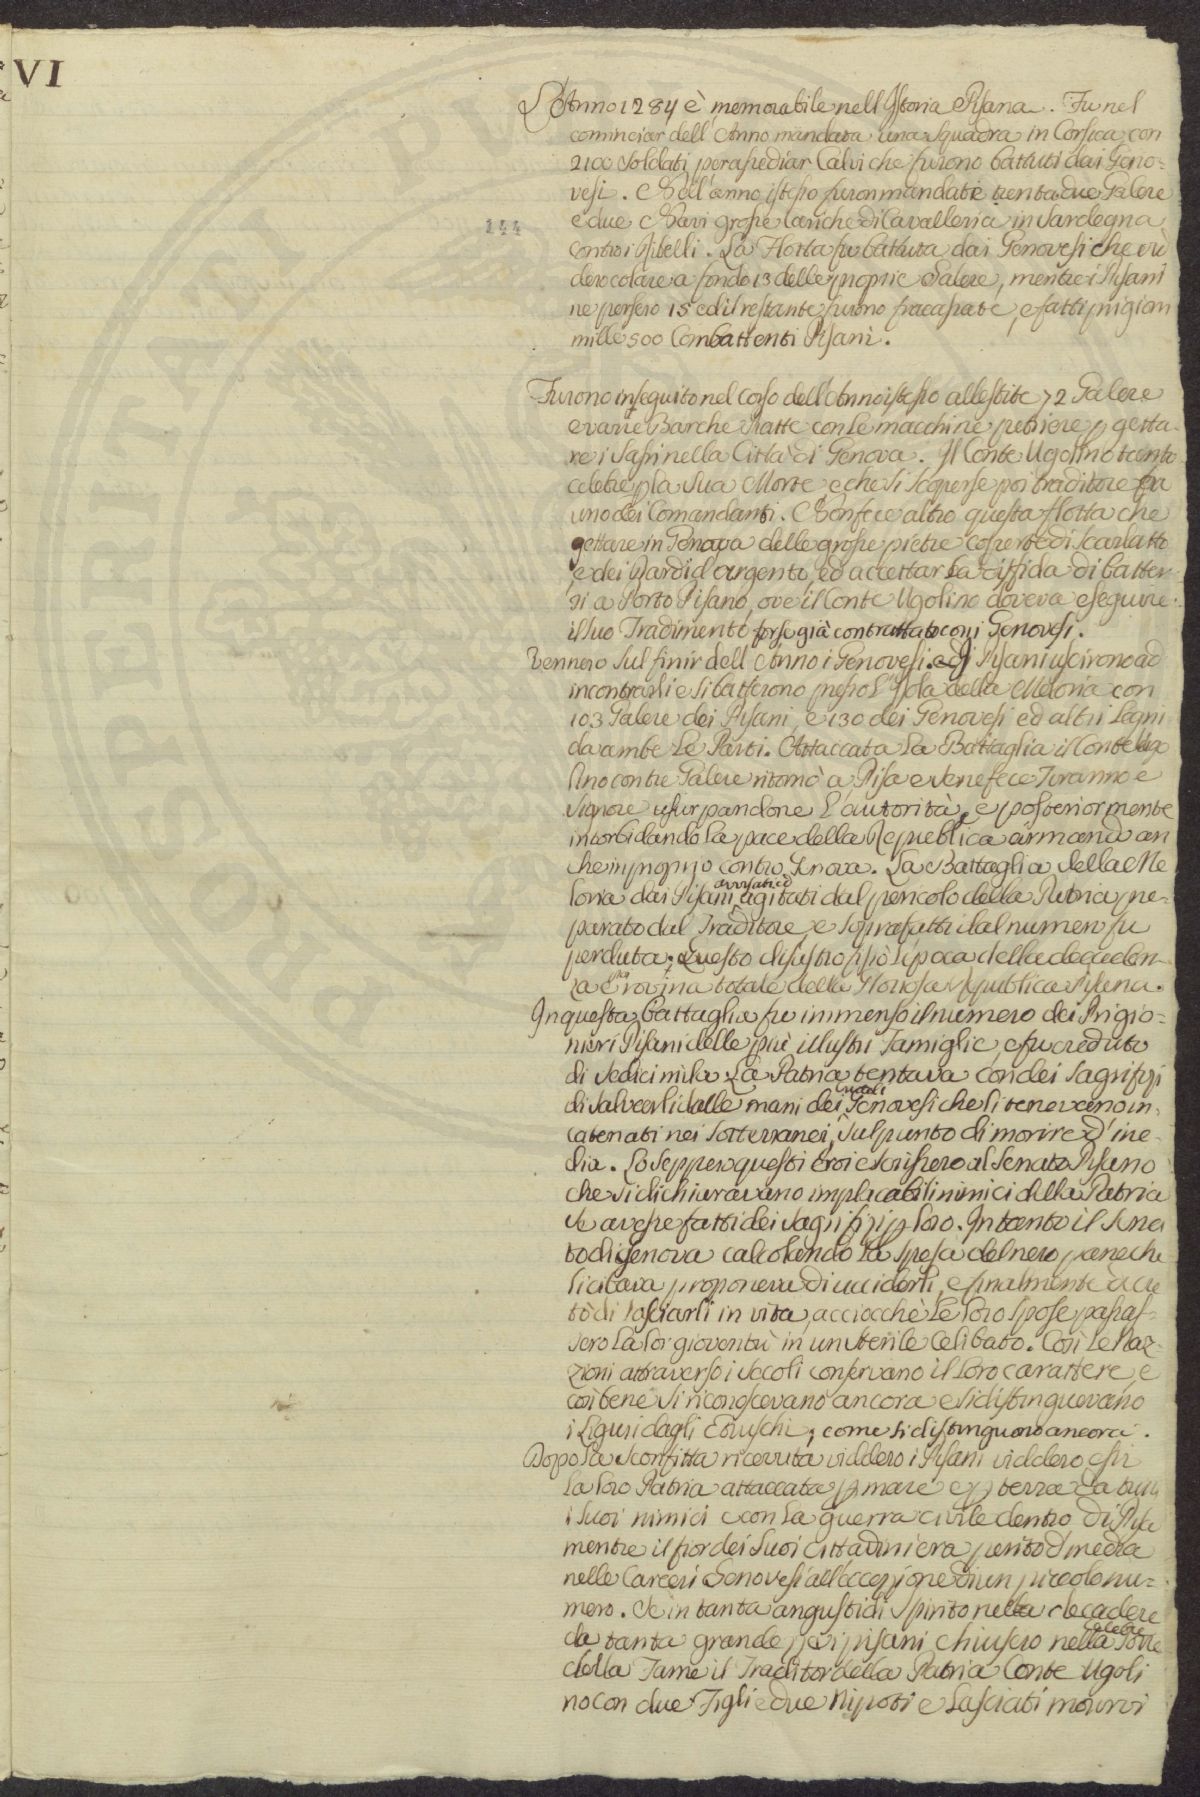 VI
L'Anno 1284 è memorabile nell'Istoria Pisana. Fu nel
cominciar dell'Anno mandata una squadra in Corsica con
2100 Soldati per assediar Calvi che furono battuti dai Geno=
vesi. Nell'anno istesso furon mandati trenta due Galere
e due Navi grosse cariche di Cavalleria in Sardegna
144
contro i Ribelli. La Flotta fu battuta dai Genovesi che vi=
dero colare a fondo 13 delle proprie Galere, mentre i Pisani
ne persero 15 ed il restante furono fracassate, e fatti prigioni
mille 500 Combattenti Pisani.
Furono in seguito nel corso dell'Anno istesso allestite 72 Galere
e varie Barche Piatte con le macchine petriere p getta=
re i Sassi nella Città di Genova. Il Conte Ugolino tanto
celebre p la sua Morte, e che si scoperse poi traditore fu
uno dei Comandanti. Non fece altro questa flotta che
gettare in Genova delle grosse pietre coperte di Scarlatto
e dei Dardi d'argento, ed accettar la diffida di batter=
si a Porto Pisano, ove il Conte Ugolino doveva eseguire
il suo Tradimento forse già contrattato con i Genovesi.
Vennero sul finir dell'Anno i Genovesi. ed i Pisani uscirono ad
incontrarli e si batterono presso l'Isola della Meloria con
103 Galere dei Pisani, e 130 dei Genovesi ed altri Legni
da ambe le Parti. Attaccata la Battaglia il Conte Ugo
lino con tre Galere ritornò a Pisa e se ne fece Tiranno e
Signore usurpandone l'autorità, e posteriormente
intorbidando la pace della Republica armando an
che in proprio contro Genova. La Battaglia della Me
loria dai Pisani agitati dal pericolo della Patria pre=
parato dal Traditore, e sopraffatti dal numero fu
perduta; Questo disastro fissò l'epoca della decaden=
za e rovina totale della Gloriosa Republica Pisana.
In questa battaglia fu immenso il numero dei Prigio=
nieri Pisani delle più illustri Famiglie, e fu creduto
di sedici mila. La Patria tentava con dei Sagrifizj
di salvarli dalle mani dei
crudeli
Genovesi che li tenevano in=
catenati nei Sotterranei, sul punto di morire d'ine=
dia. Lo seppero questi Eroi e scrissero al Senato Pisano
che si dichiaravano implacabili nimici della Patria
se avesse fatti dei sagrifizj p loro. Intanto il Sena
to di Genova calcolando la spesa del nero pane che
li cibava proponeva di ucciderli, e finalmente decre
tò di lasciarli in vita, acciocchè le loro Spose passas=
sero la lor gioventù in un sterile Celibato. Così le Naz=
zioni attraverso i secoli conservano il loro carattere, e
così bene si riconoscevano ancora e si distinguevano
i Liguri dagli Etruschi, come si distinguono ancora.
Dopo la sconfitta ricevuta viddero i Pisani viddero essi
la loro Patria attaccata p mare e p terra da tutti
i suoi nimici e con la guerra civile dentro di Pisa
mentre il fior dei suoi cittadini era perito d'inedia
nelle Carceri Genovesi all'eccezione di un piccolo nu=
mero. Se in tanta angustia di Spirito nella decadere
da tanta grande i pisani chiusero nella
celebre
Torre
della Fame il Traditor della Patria Conte Ugoli
no con due Figli e due Nipoti e lasciati morirvi